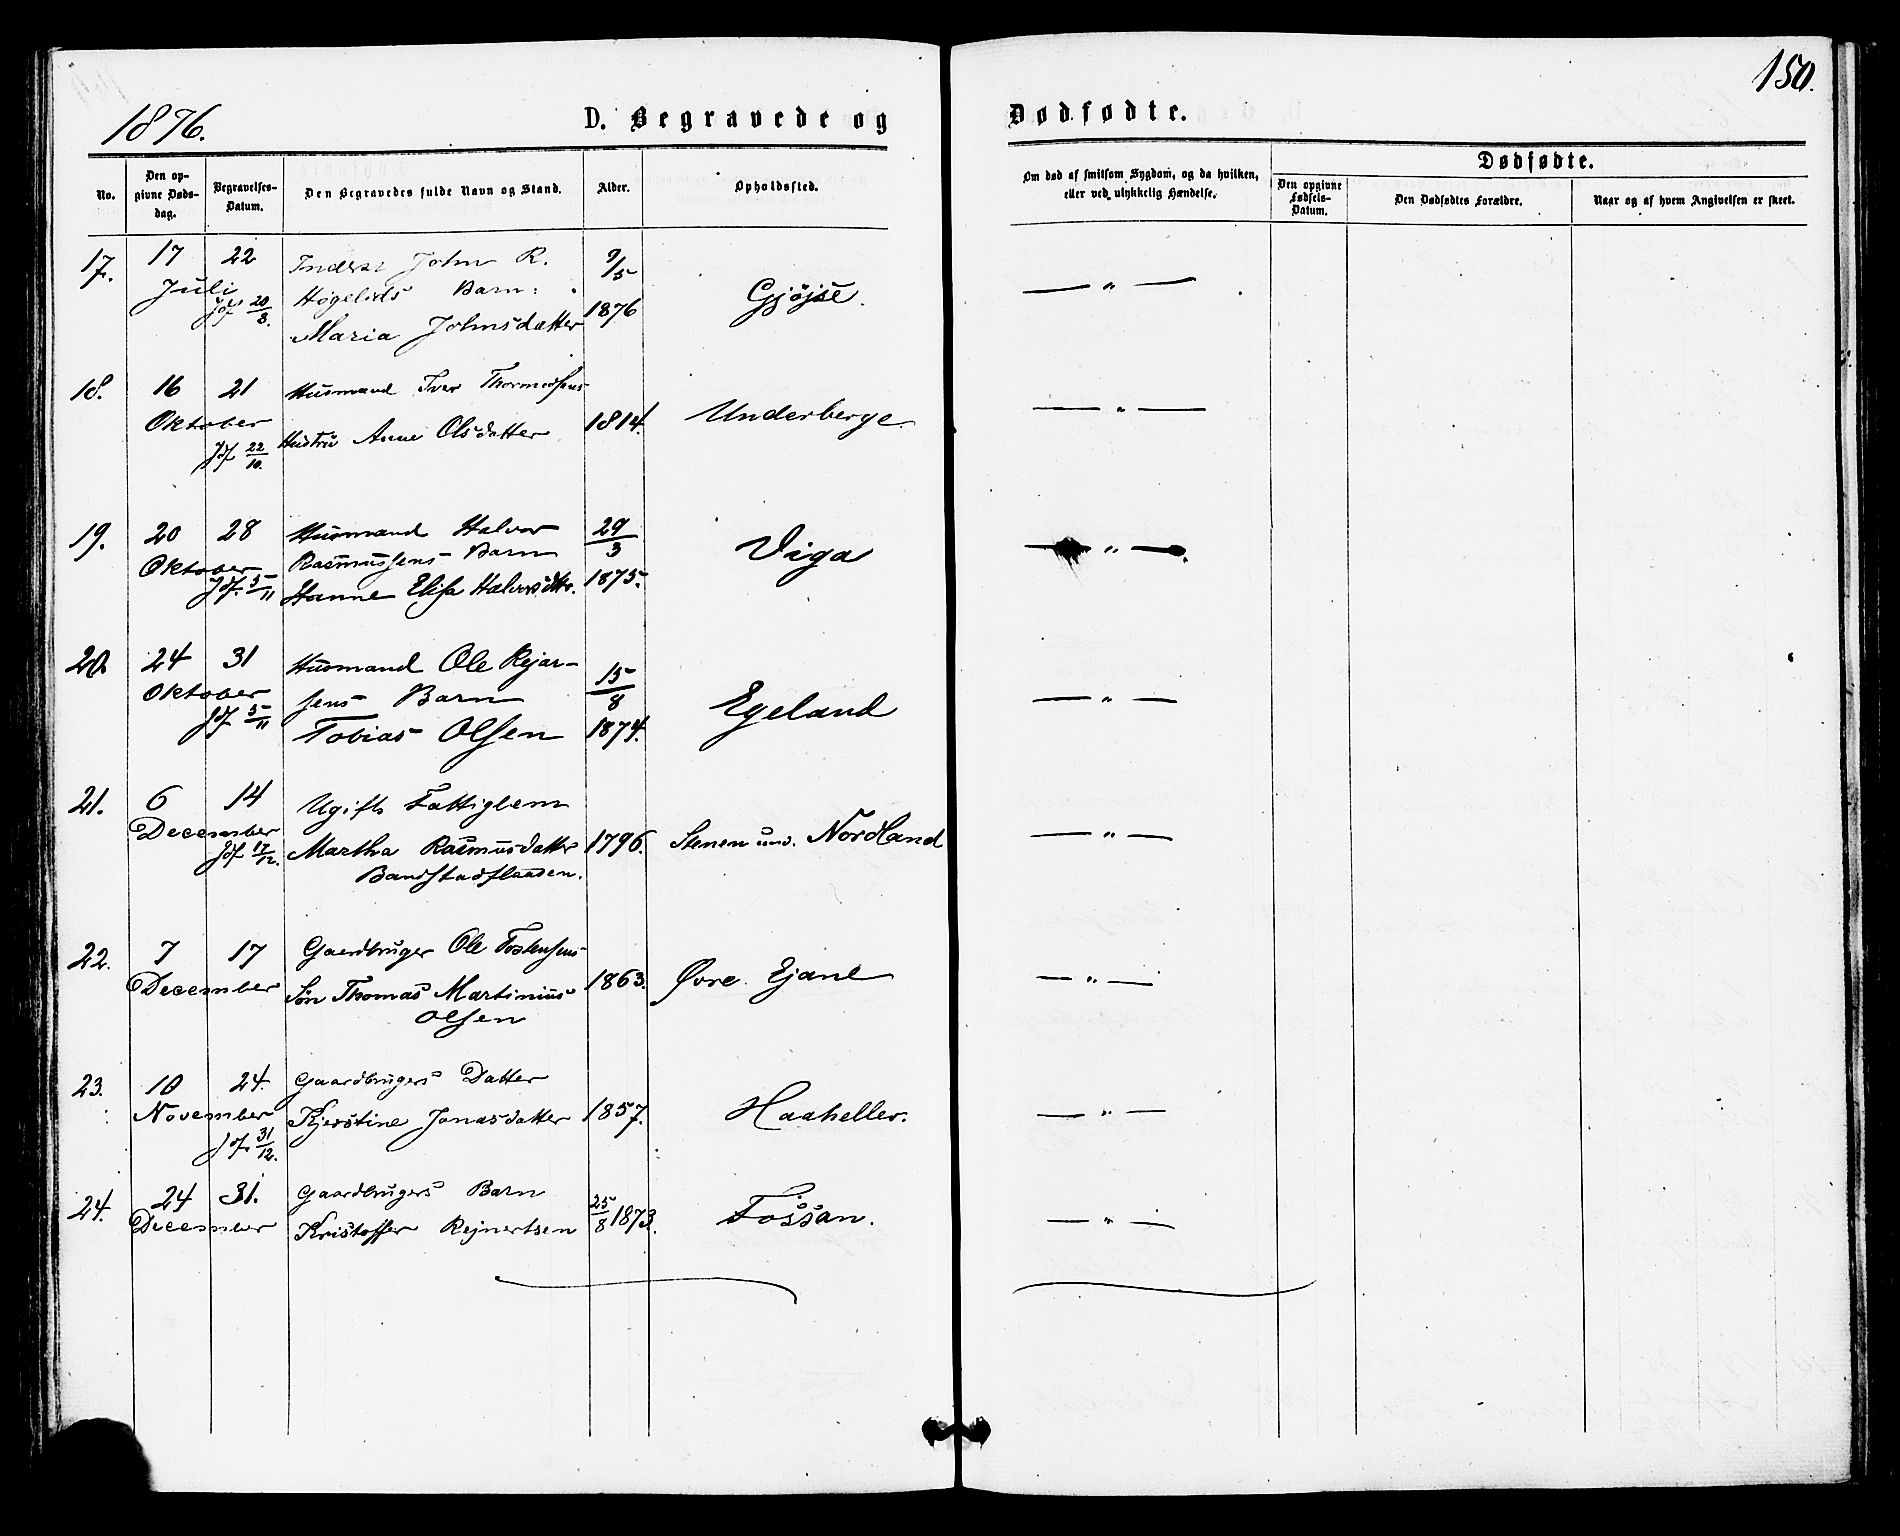 150.
1876.
D. Begravede og Dødfødte.
No.
Den opgivne Dødsdag.
Begravelses-Datum.
Den Begravedes fulde Navn og Stand.
Alder.
Opholdssted.
Om død af smitsom Sygdom, og da hvilken, eller ved ulykkelig Hændelse.
Dødfødte.
Den opgivne Fødsels-Datum.
Den Dødfødtes Forældre.
Naar og af hvem Angivelsen er skeet.
17. 17 22 John R. 9/5
Juli Barn: Gjøjse. — " —
Jdf 20/8. Maria Johnsdatter 1876
18. 16 21 Husmand Iver
Oktober Hustru Anne Olsdatter 1814. Underberge — " —
Jdf 22/10.
19. 20 28 Husmand Halvor 29/3
Oktober Rasmussens Barn Viga — " —
Jdf. 5/11 Hanne Elisa Halvorsdtr. 1875.
20 24 31 Husmand Ole Rejar- 15/8
Oktober sens Barn Egeland — " —
Jdf 5/11 Tobias Olsen 1874.
21. 6 14 Ugift Fattiglem
December
Jdf 17/12. Martha Rasmusdatter 1796. Stenen und. Nordland — " —
22. 7 17 Gaardbruger Ole Tostensens
December Søn Thomas Martinius 1863. Øvre Ejane — " —
Olsen
23. 10 24. Gaardbrugers Datter
November Kjerstine Jonasdatter 1857. Haaheller. — " —
Jdf. 31/12.
24. 24 31. Gaardbrugers Barn 25/8 1873.
December Kristoffer Rejnertsen Fossan. — " —